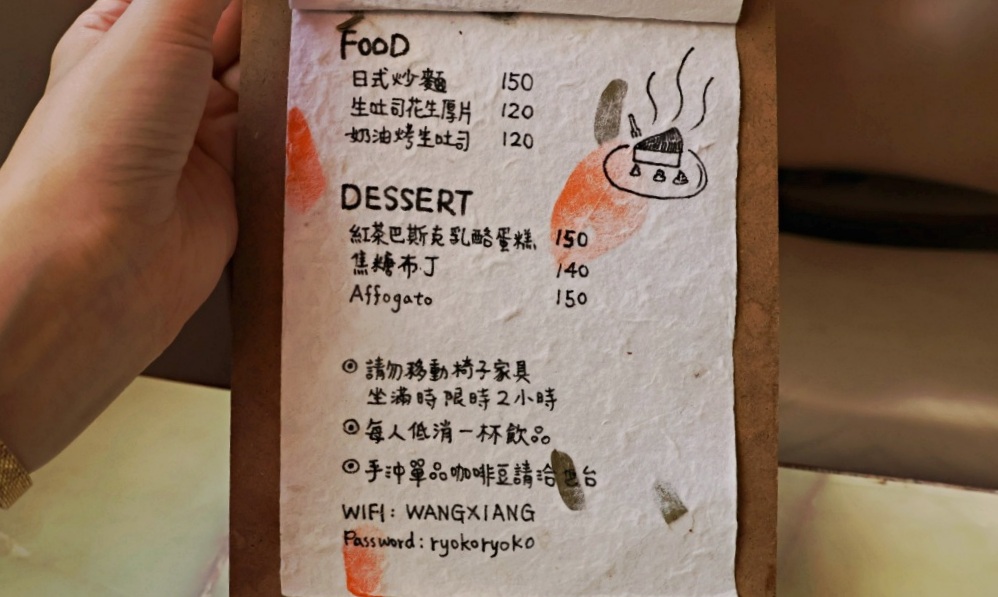 FOOD
日式炒麵 150
生吐司花生厚片 120
奶油烤生吐司 120
DESSERT
紅茶巴斯克乳酪蛋糕 150
焦糖布丁 140
Affogato 150
請勿移動椅子家具
坐滿時限時2小時
每人低消一杯飲品
手沖單品咖啡豆請洽吧台
WIFI: WANGXIANG
Password: ryokoryoko